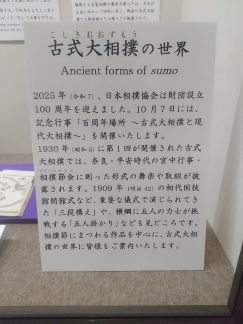 こしきおおずもう
古式大相撲の世界
Ancient forms of sumo
2025年(令和7)、日本相撲協会は財団設立
100周年を迎えました。10月7日には、
記念行事「百周年場所 〜古式大相撲と現
代大相撲〜」を開催いたします。
1930年(昭和5)に第1回が開催された古式
大相撲では、奈良・平安時代の宮中行事・
相撲節会に則った形式の舞楽や取組が披
露されます。1909年(明治42)の初代国技
館開館式など、重要な儀式で演じられてき
た「三段構え」や、横綱に五人の力士が挑
戦する「五人掛かり」なども見どころです。
相撲節にまつわる作品を中心に、古式大相
撲の世界に皆様をご案内いたします。